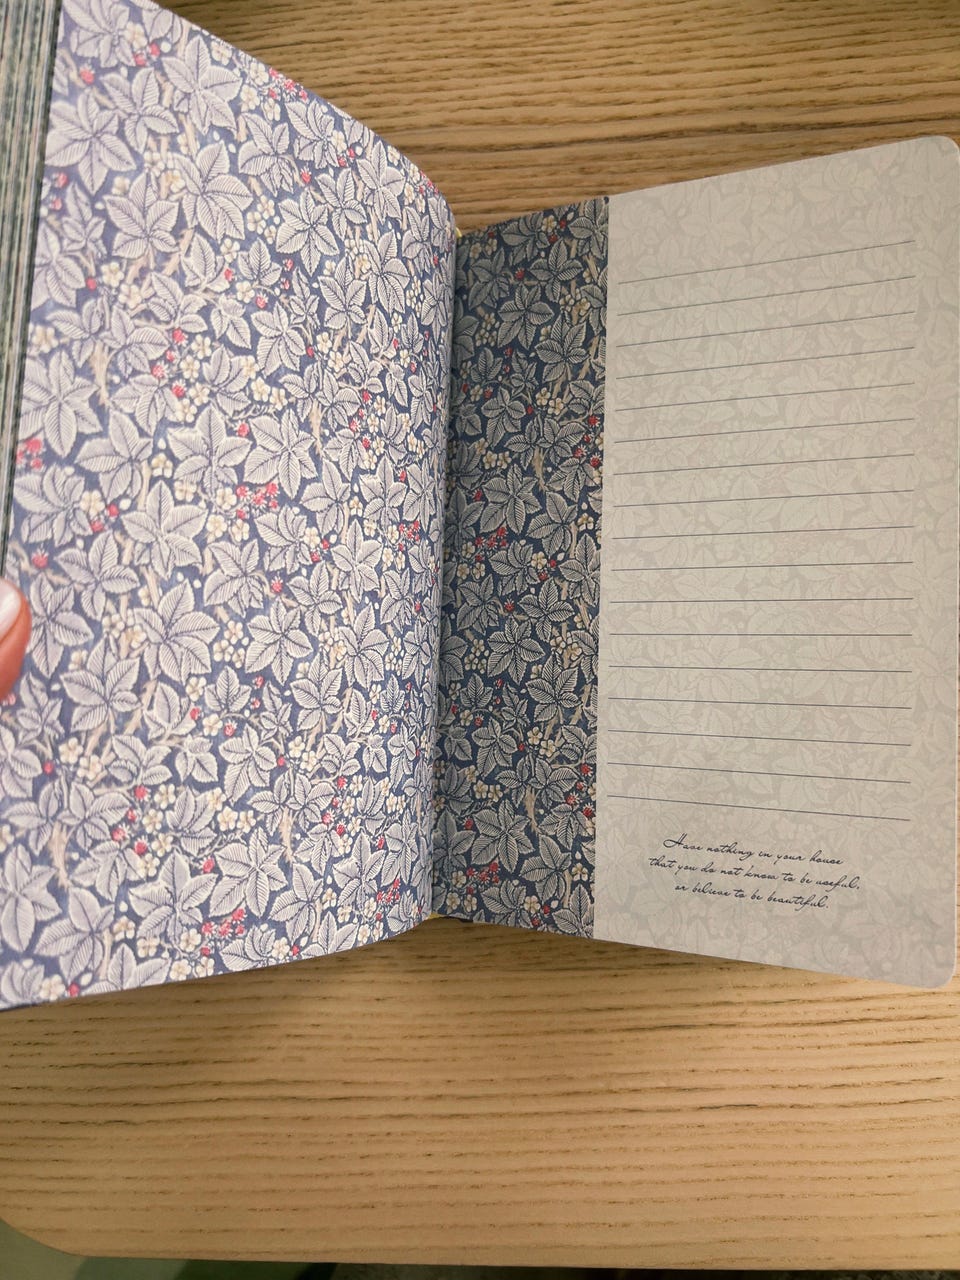 Have nothing in your house
that you do not know to be useful,
or believe to be beautiful.